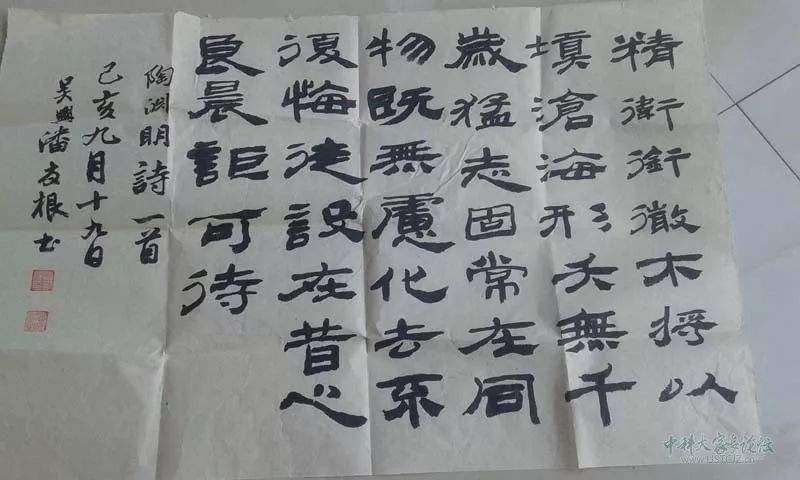 精衛銜微木將以
填滄海形夭無千
歲猛志固常在同
物既無慮化去不
復悔徒設在昔心
良晨詎可待
陶渊明詩一首
己亥九月十九日
吴興潘友根书
中科大家长论坛